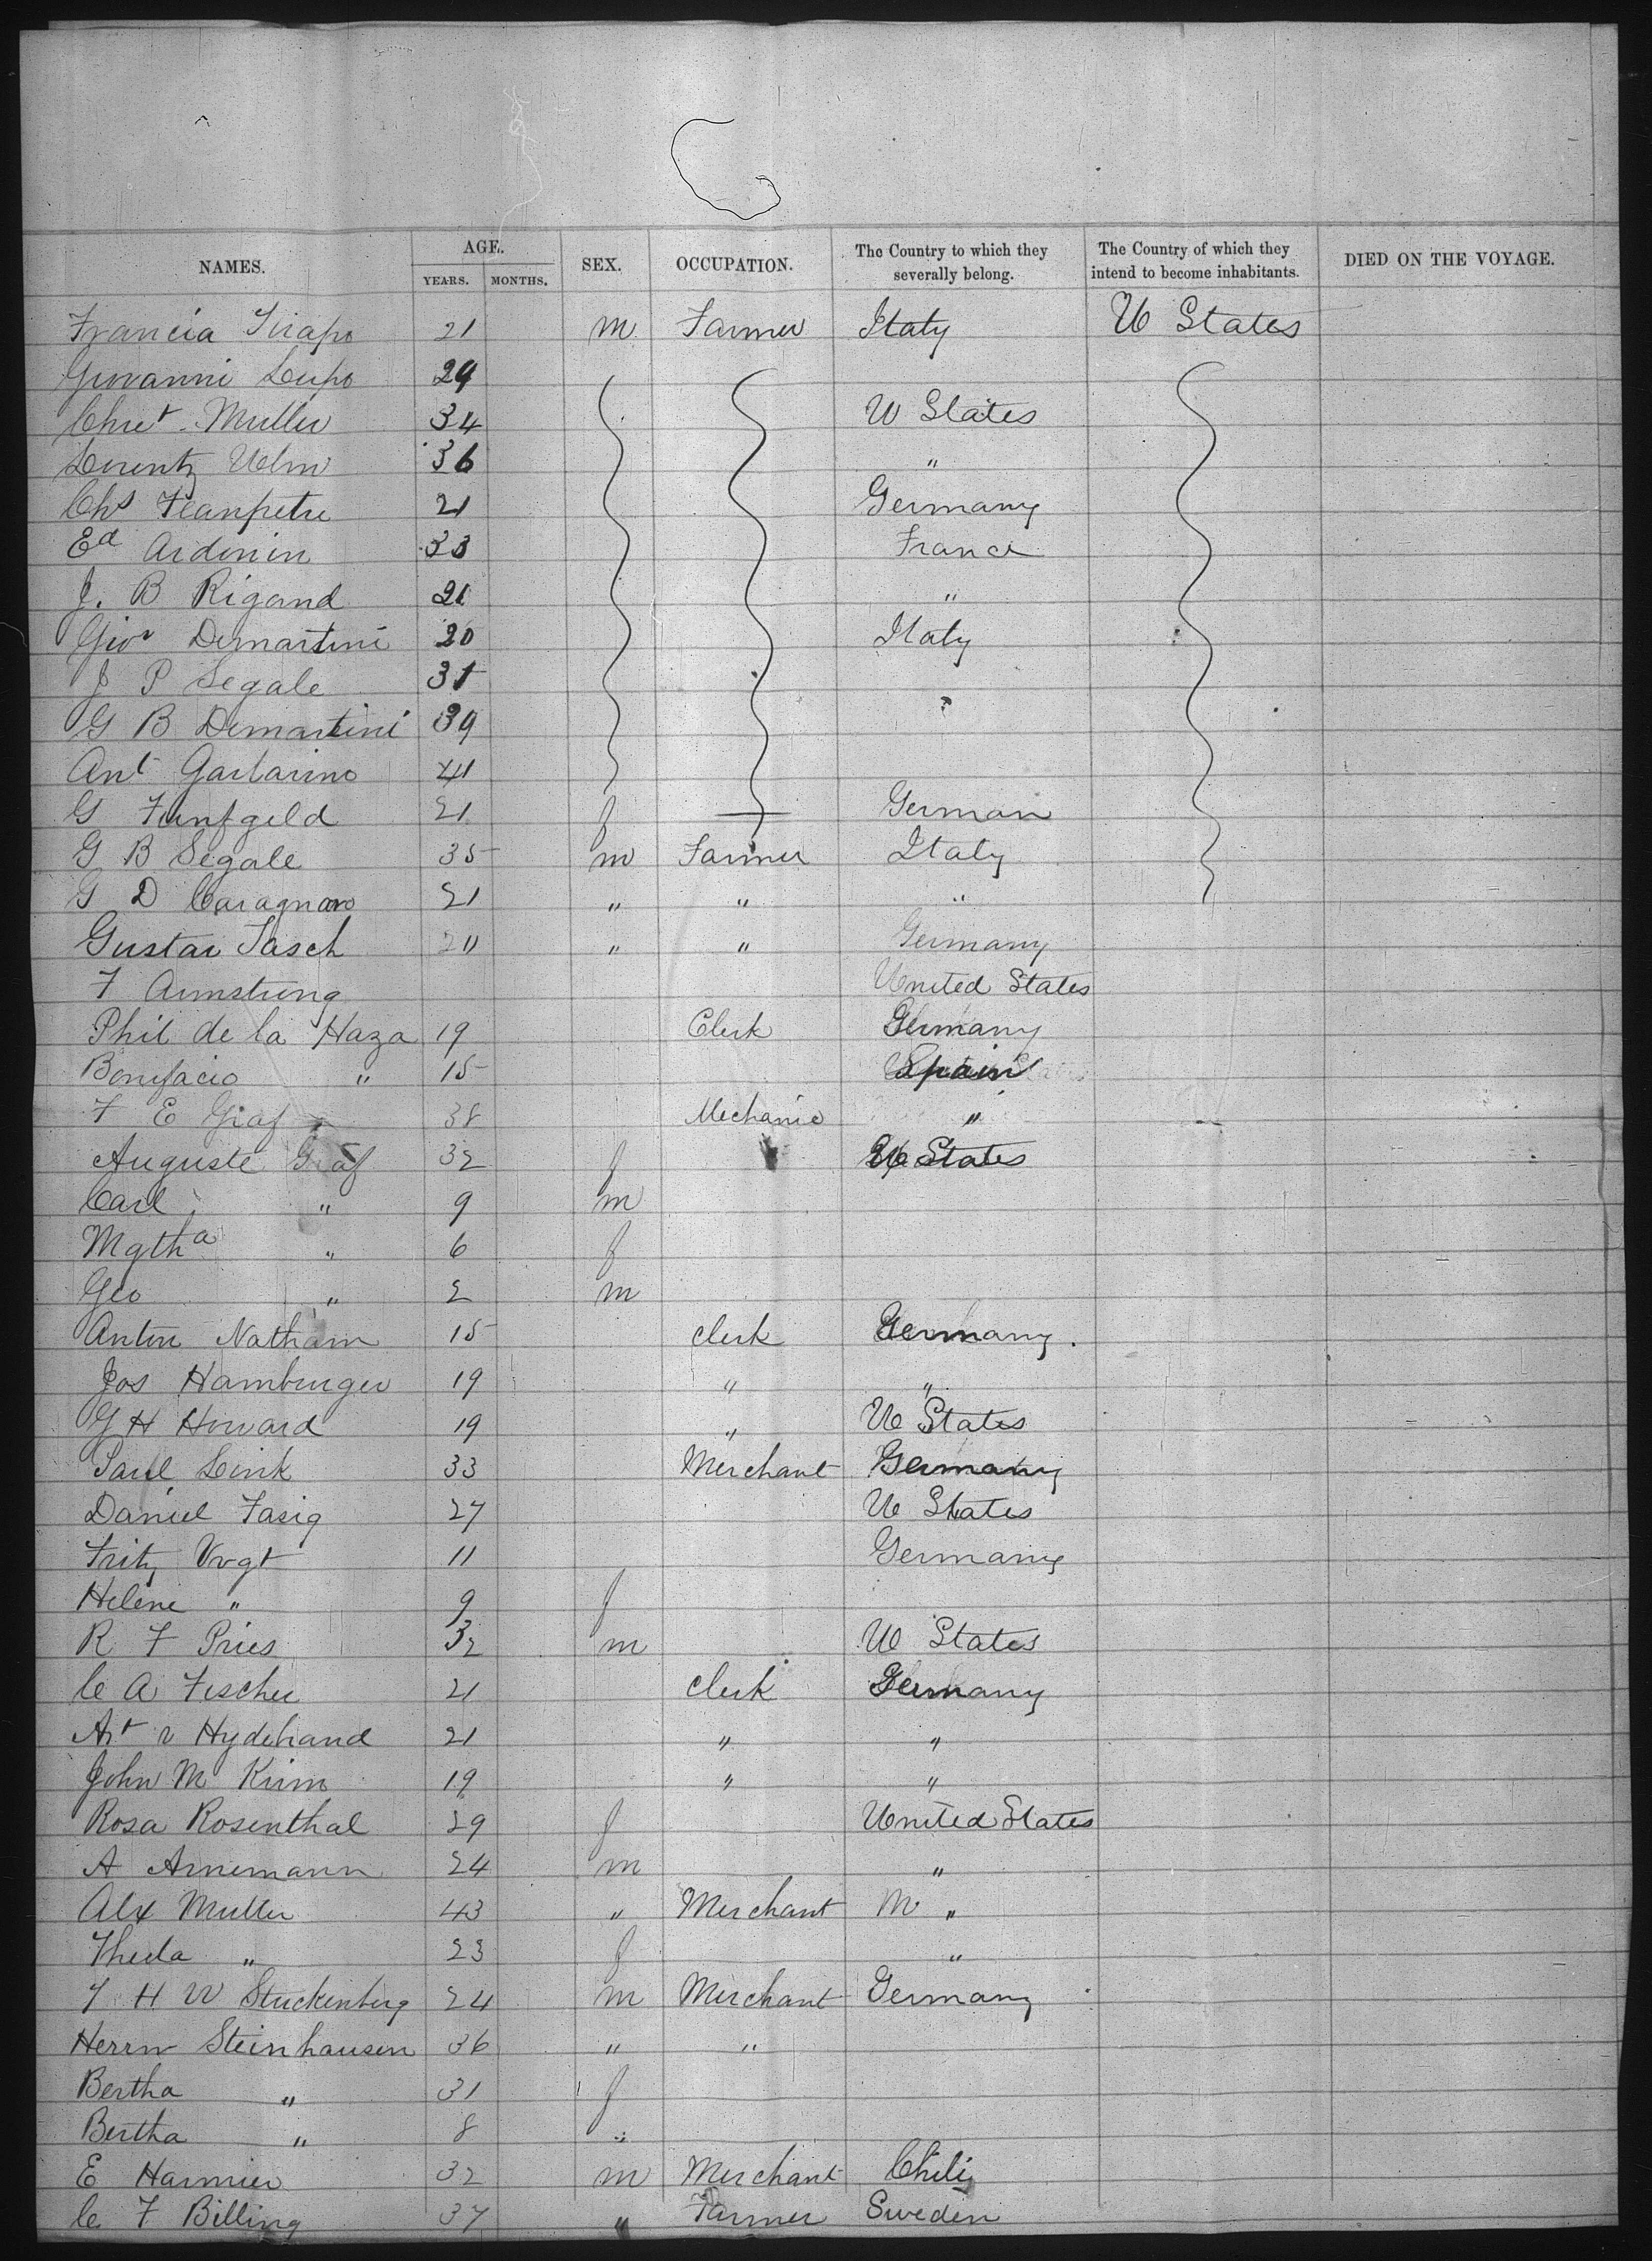 NAMES. AGE. YEARS. MONTHS. SEX. OCCUPATION. The Country to which they severally belong. The Country of which they intend to become inhabitants. DIED ON THE VOYAGE.
Francia 21 m Farmer Italy U States
Giovanni Lupo 29
Chrt Muller 34 U States
Lorentz Ulm 36 "
Chs Jeanpetre 21 Germany
Ed Ardinin 33 France
J. B Rigand 21 "
Giov Demartini 20 Italy
J P Segale 31
G B Demartini 39 "
Ant Garbarino 41
G Funfgeld 21 f — German
G B Segale 35 m Farmer Italy
G D Caragnaro 21 " " "
Gustav Jasch 20 " " Germany
F Armstrong United States
Phil de la Haza 19 Clerk Germany
Bonifacio " 15 Spain
F E Graf 38 Mechanic "
Auguste Graf 32 f U States
Carl " 9 m
Mgtha " 6 f
Geo " 2 m
Anton Natham 15 clerk Germany.
Jos Hamburger 19 " "
G H Howard 19 " U States
Paul Link 33 Merchant Germany
Daniel Fasig 27 U States
Fritz Vogt 11 Germany
Helene " 9 f
R F Pries 32 m U States
C A Fischer 21 clerk Germany
Art v Hydebrand 21 " "
John M Krim 19 " "
Rosa Rosenthal 29 f United States
A Arnemann 24 m "
Alx Muller 43 " Merchant "
Theda " 23 f "
H W Stuckenberg 24 m Merchant Germany
Herrm Steinhausen 36 " "
Bertha " 31 f
Bertha " 8 "
E Harmier 32 m Merchant Chili
C F Billing 37 " Farmer Sweden